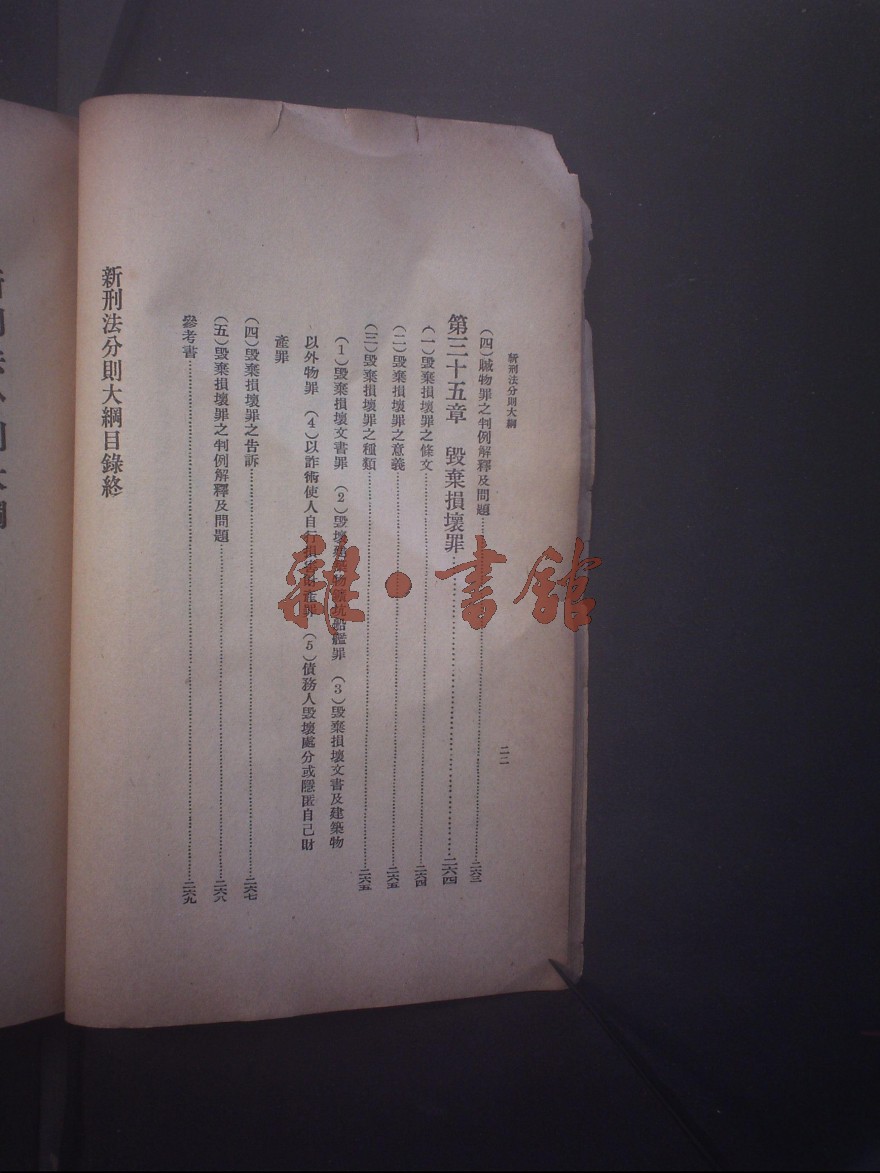 新刑法分則大綱
二二
（四）贓物罪之判例解釋及問題……二六三
第三十五章　毀棄損壞罪……二六四
（一）毀棄損壞罪之條文……二六四
（二）毀棄損壞罪之意義……二六五
（三）毀棄損壞罪之種類……二六五
（1）毀棄損壞文書罪　（2）毀壞 船艦罪　（3）毀棄損壞文書及建築物
以外物罪　（4）以詐術使人自 罪　（5）債務人毀壞處分或隱匿自己財
產罪
（四）毀棄損壞罪之告訴……二六七
（五）毀棄損壞罪之判例解釋及問題……二六八
參考書……二六九
新刑法分則大綱目錄終
雜·書館